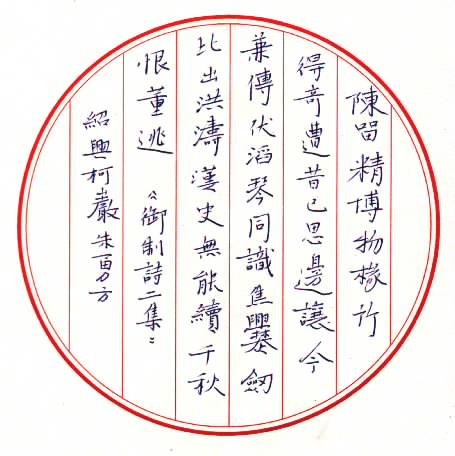 陳留精博物椽竹
得奇遭昔已思邊讓今
兼傳伏滔琴同識焦爨劍
比出洪濤漢史無能續千秋
恨董逃 《御制詩二集》
紹興柯巖朱勇方